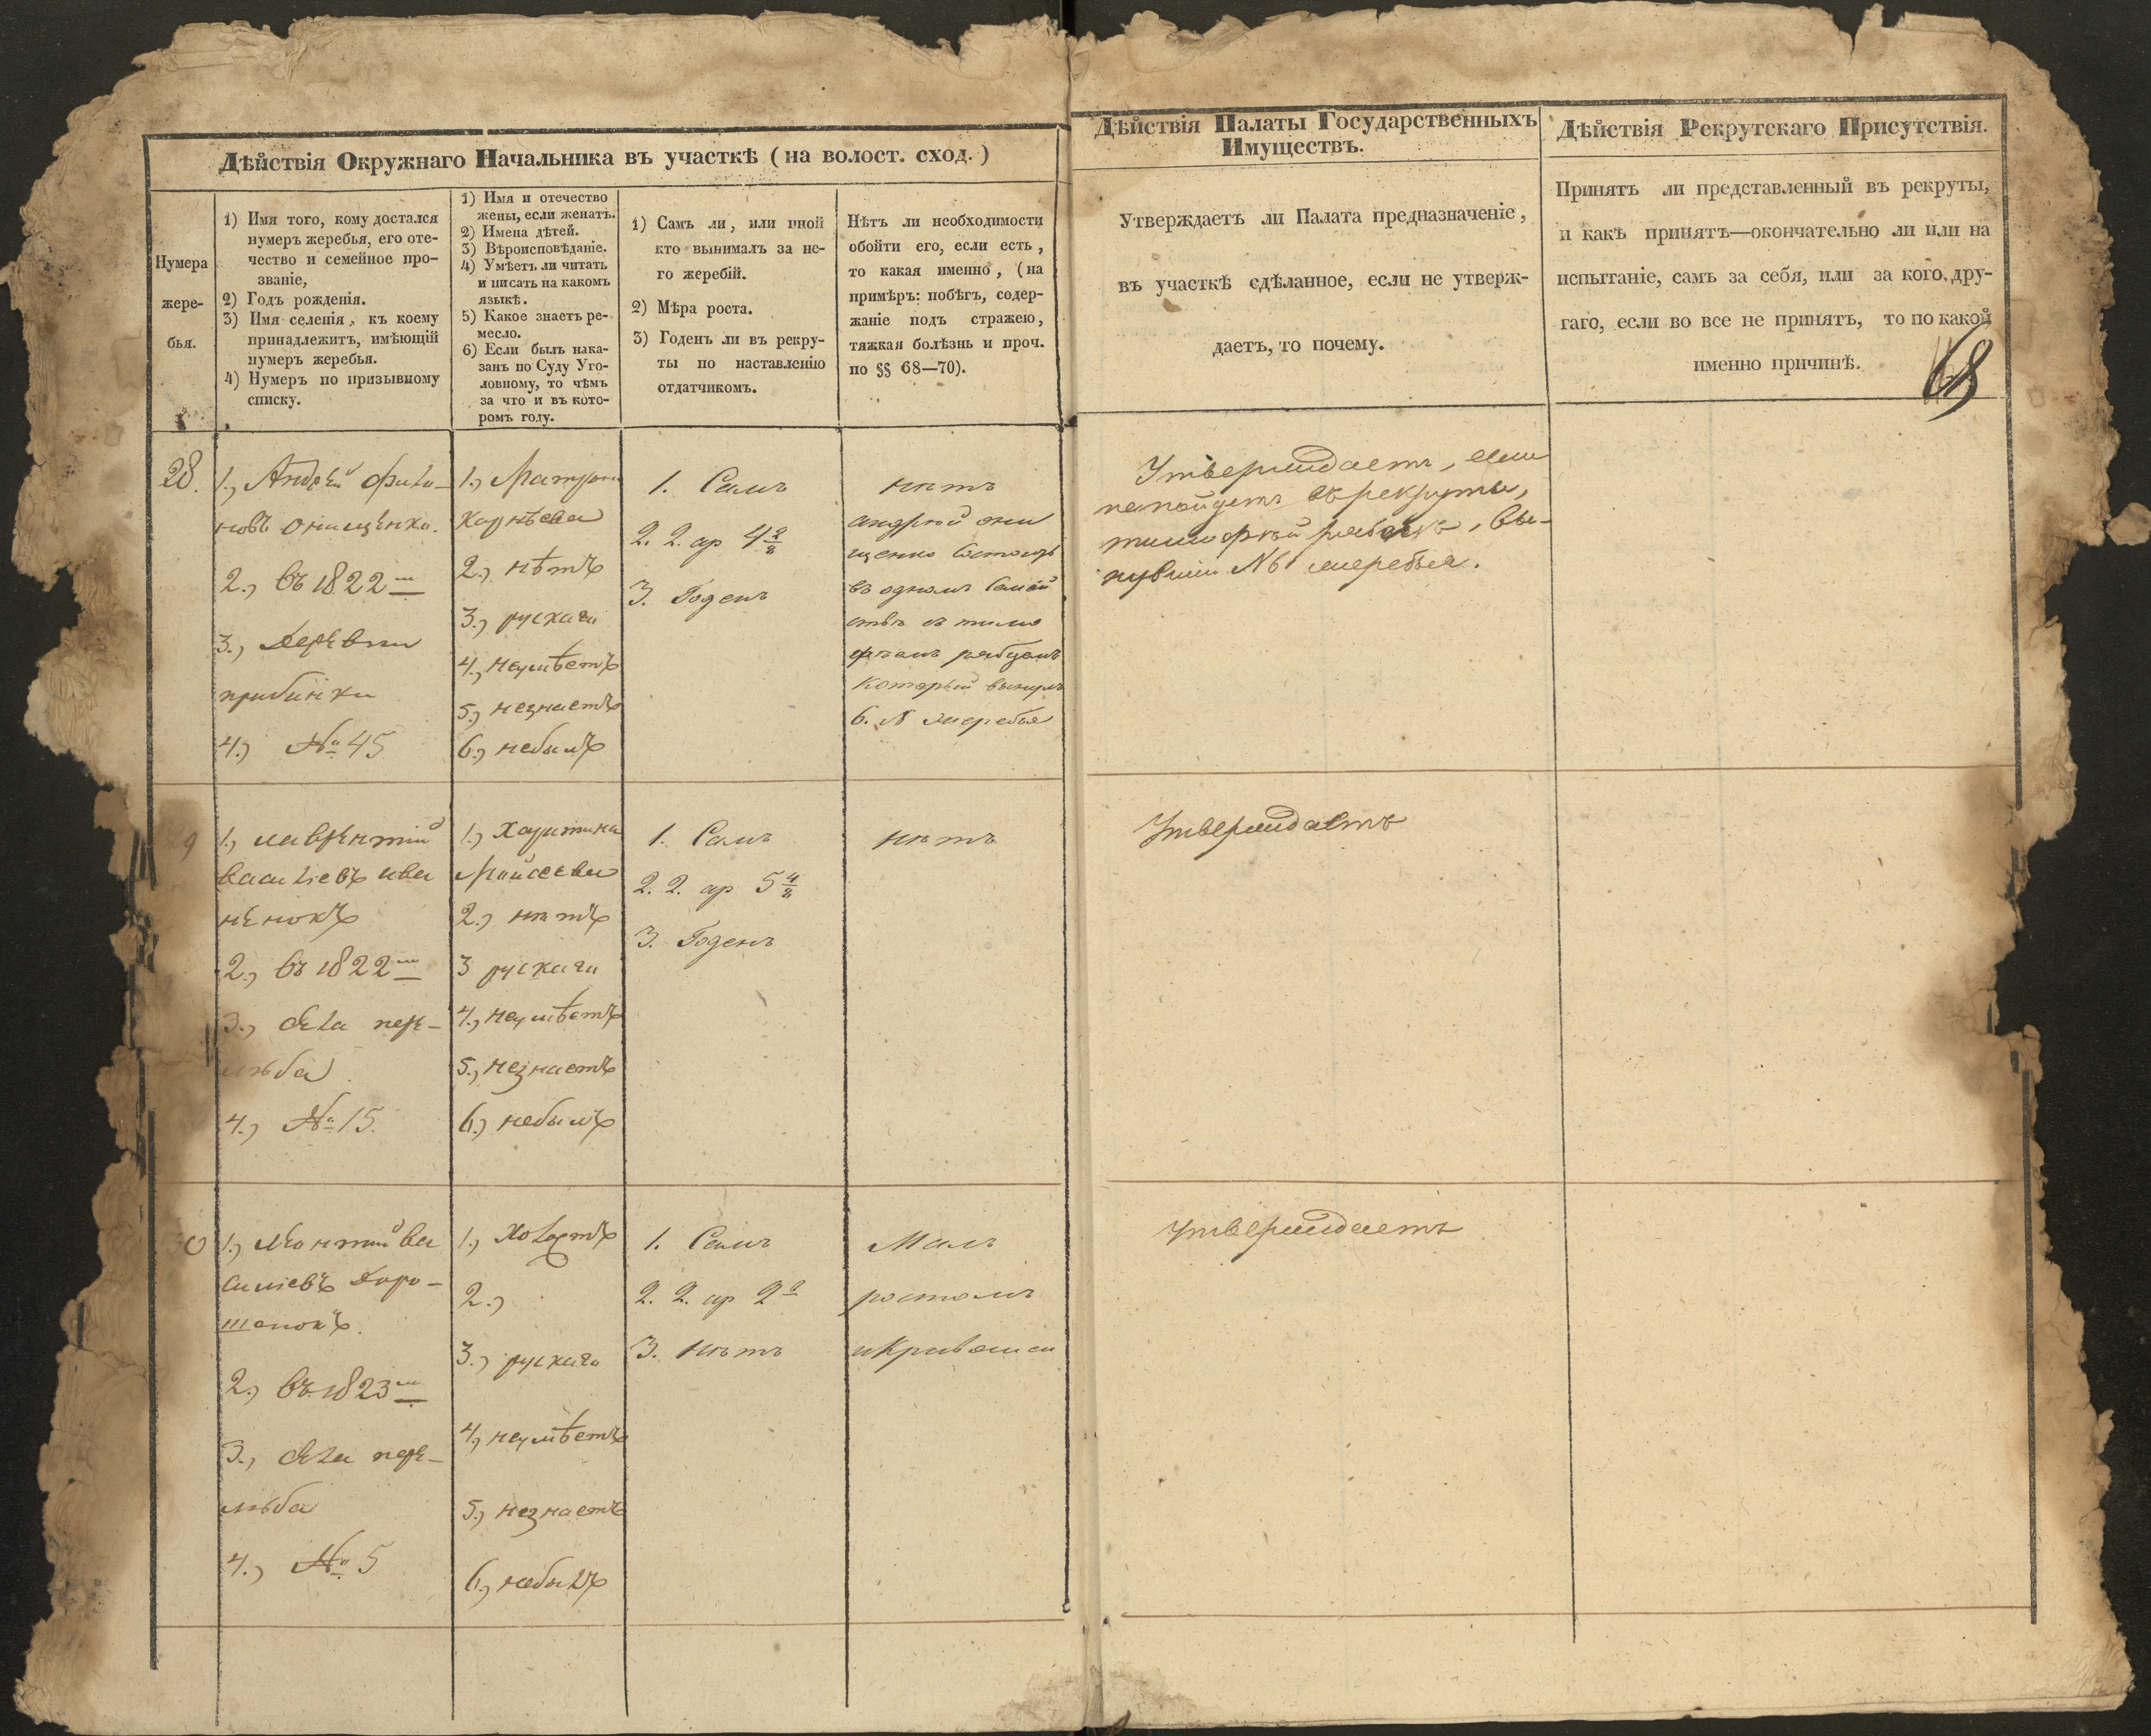 Дѣйствія Окружнаго Начальника въ участкѣ (на волост. сход.)
Нумера
жере-
бья.
1) Имя того, кому достался
нумеръ жеребья, его оте-
чество и семейное про-
званіе,
2) Годъ рожденія.
3) Имя селенія, къ коему
принадлежитъ, имѣющій
нумеръ жеребья.
4) Нумеръ по призывному
списку.
1) Имя и отечество
жены, если женатъ.
2) Имена дѣтей.
3) Вѣроисповѣданіе.
4) Умѣетъ ли читать
и писать на какомъ
языкѣ.
5) Какое знаетъ ре-
месло.
6) Если былъ нака-
занъ по Суду Уго-
ловному, то чѣмъ
за что и въ кото-
ромъ году.
1) Самъ ли, или иной
кто вынималъ за не-
го жеребій.
2) Мѣра роста.
3) Годенъ ли въ рекру-
ты по наставленію
отдатчикомъ.
Нѣтъ ли необходимости
обойти его, если есть,
то какая именно, (на
примѣръ: побѣгъ, содер-
жаніе подъ стражею,
тяжкая болѣзнь и проч.
по §§ 68—70).
Дѣйствія Палаты Государственныхъ
Имуществъ.
Утверждаетъ ли Палата предназначеніе,
въ участкѣ сдѣланное, если не утверж-
даетъ, то почему.
Дѣйствія Рекрутскаго Присутствія.
Принятъ ли представленный въ рекруты,
и какъ принятъ—окончательно ли или на
испытаніе, самъ за себя, или за кого дру-
гаго, если во все не принятъ, то по какой
именно причинѣ.
68
28.
1., Андрей Фили-
новъ Онищенко.
2., въ 1822 м
3., Деревни
прибинки
4.) № 45
1., Матрона
Карнѣева
2., нѣтъ
3., рускаго
4., неумѣетъ
5., незнаетъ
6., небылъ
1. Самъ
2. 2. ар 4 2/8
3. Годенъ
нѣтъ
андрей они
щенко состоитъ
въ одномъ семей
ствѣ съ тимо
фѣемъ рябцомъ
который вынулъ
6. № жеребья
Утверждаетъ, если
непойдетъ въ рекруты,
тимофѣй рябецъ, вы-
нувшій № 6 жеребья.
9
1., лаврентій
василіевъ ива
ненокъ
2., въ 1822 м
3., села пере-
люба
4., № 15.
1., Харитина
Мойсеева
2., нѣтъ
3 рускаго
4., неумѣетъ
5., незнаетъ
6., небылъ
1. Самъ
2. 2. ар 5 4/8
3. Годенъ
нѣтъ
Утверждаетъ
0
1., Леонтій ва
силіевъ Доро-
шенокъ.
2., въ 1823 м
3., села пере-
люба
4., № 5
1., Холостъ
2.,
3., рускаго
4., неумѣетъ
5., незнаетъ
6., небылъ
1. Самъ
2. 2. ар 2
3. нѣтъ
Малъ
ростомъ
Утверждаетъ